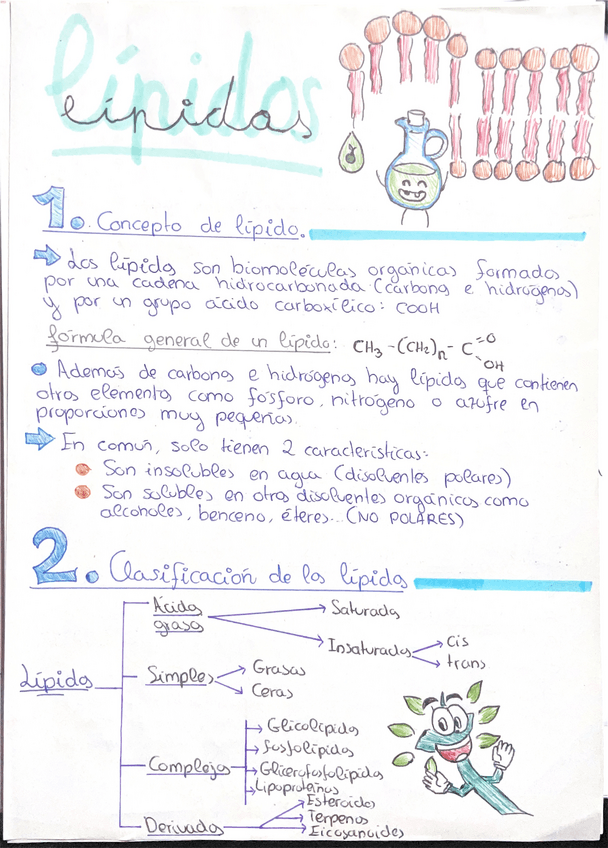 lípidos
lípidos
1. Concepto de lípido.
Los lípidos son biomoléculas orgánicas formados
por una cadena hidrocarbonada (carbono e hidrógenos)
y por un grupo ácido carboxílico: COOH
fórmula general de un lípido: CH3 -(CH2)n- C=O OH
Además de carbono e hidrógeno hay lípidos que contienen
otros elementos como fósforo, nitrógeno o azufre en
proporciones muy pequeñas.
En común, solo tienen 2 características:
Son insolubles en agua (disolventes polares)
Son solubles en otros disolventes orgánicos como
alcoholes, benceno, éteres... (NO POLARES)
2. Clasificación de los lípidos
Lípidos
Ácidos
grasos
Saturados
Insaturados
cis
trans
Simples
Grasas
Ceras
Complejos
Glicolípidos
Fosfolípidos
Glicerofosfolípidos
Lipoproteínas
Derivados
Esteroides
Terpenos
Eicosanoides